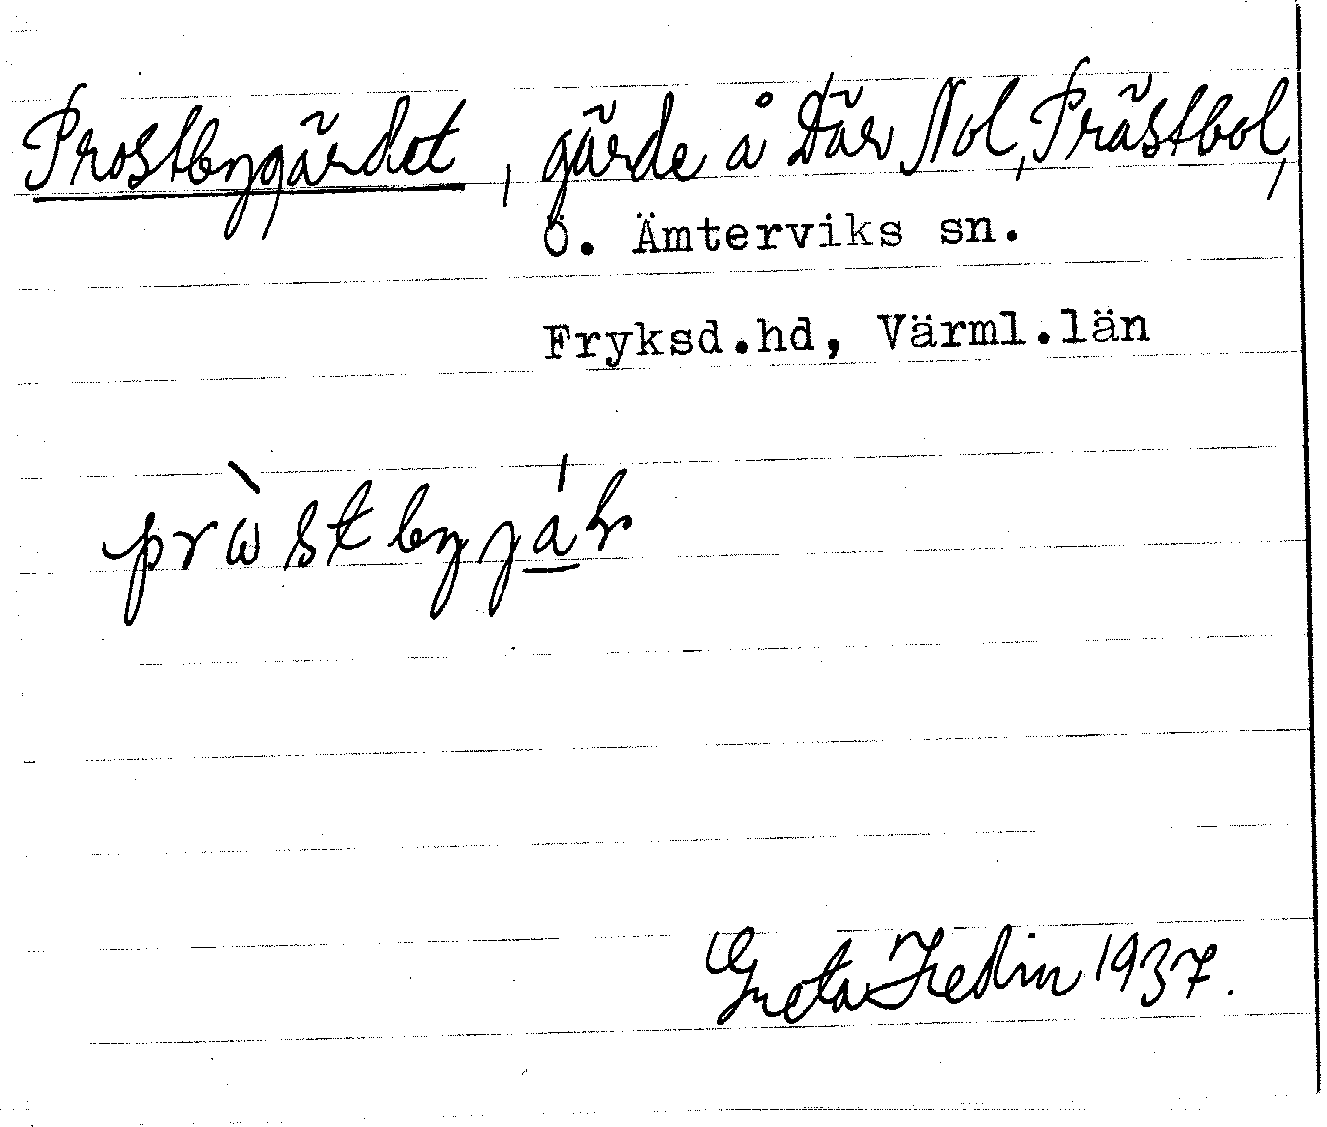 Prostbygärdet, gärde å Där Nol, Prästbol,
Ö. Ämterviks sn.
Fryksd.hd, Värml.län
Greta Hedin 1937.